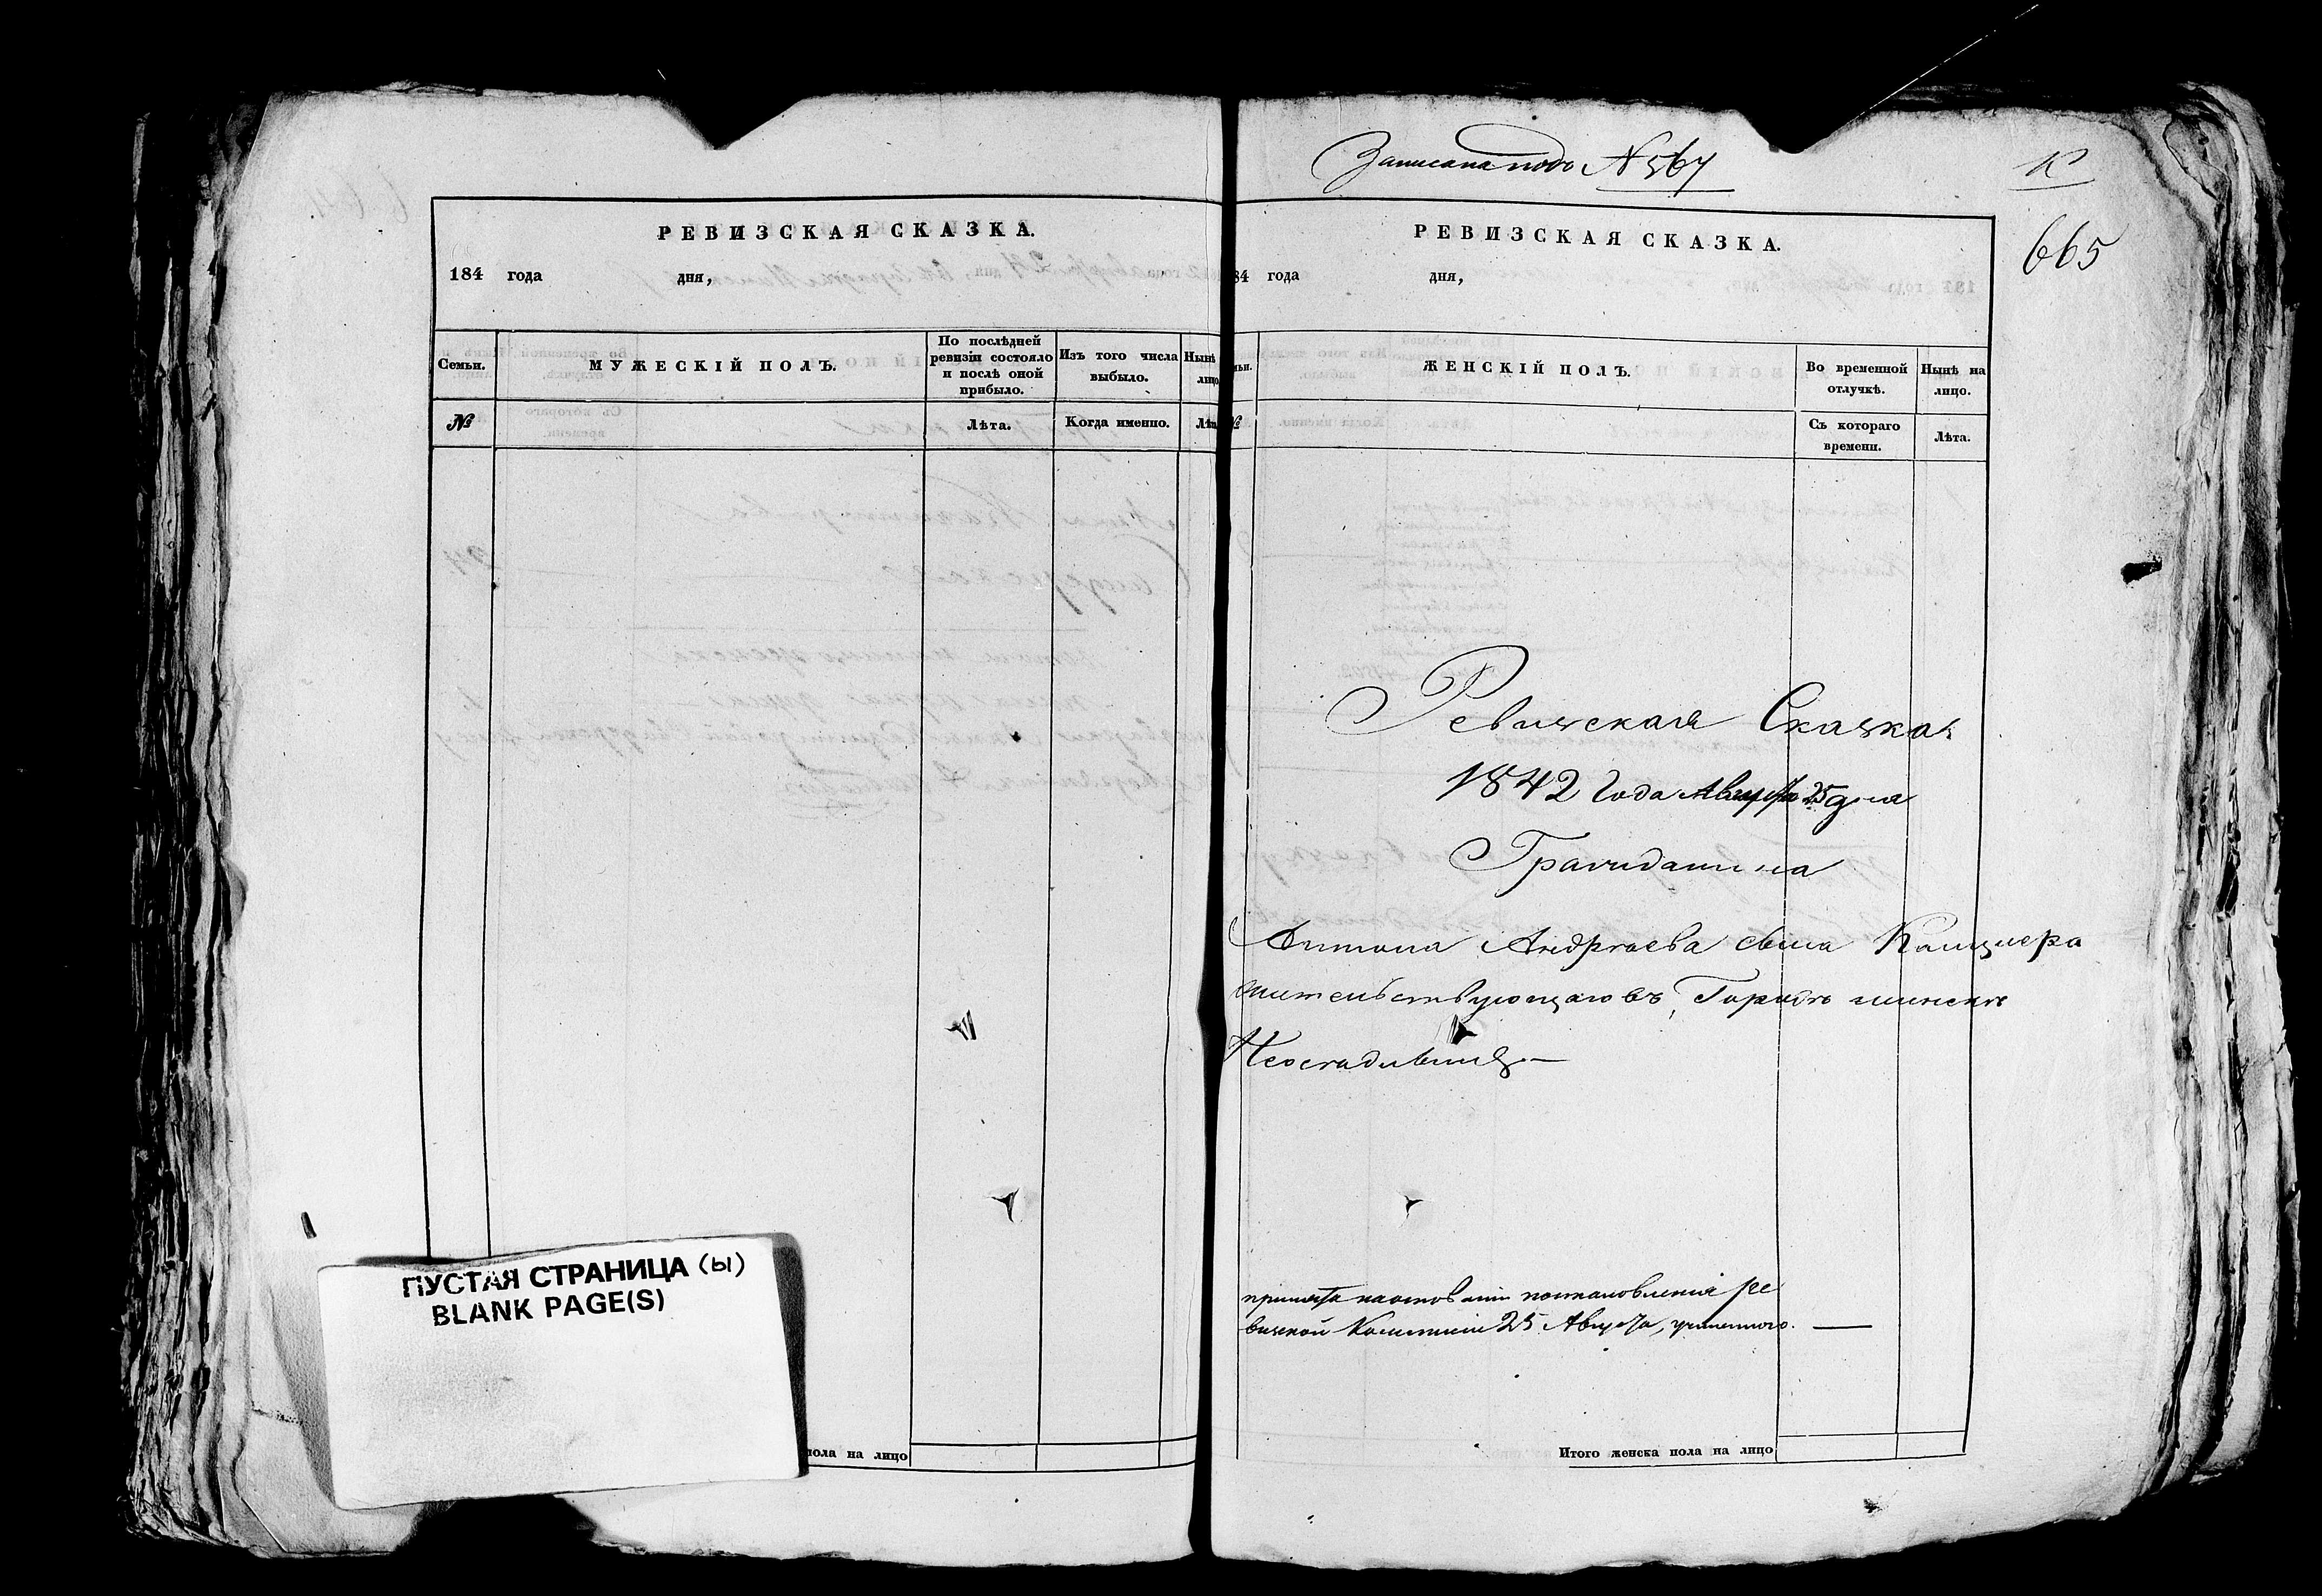 РЕВИЗСКАЯ СКАЗКА.
184 года дня,
Семьи. МУЖЕСКІЙ ПОЛЪ. По послѣдней ревизіи состояло и послѣ оной прибыло. Изъ того числа выбыло. Нынѣ лицо
№ Лѣта. Когда именно. Лѣта
ПУСТАЯ СТРАНИЦА (ы)
BLANK PAGE(S)
пола на лицо
Записана подъ № 567
К
665
РЕВИЗСКАЯ СКАЗКА.
84 года дня,
ьи. ЖЕНСКІЙ ПОЛЪ. Во временной отлучкѣ. Нынѣ на лицо.
№ Съ котораго времени. Лѣта.
Ревизская Сказка
1842 Года Августа 25 дня
Гражданина
Антона Андрѣева сына Канцлера
жительствующаго въ Городѣ Минскѣ
принята на основаніи постановленія Ре
визской Коммисіи 25 Августа, учиненнаго. —
Итого женска пола на лицо